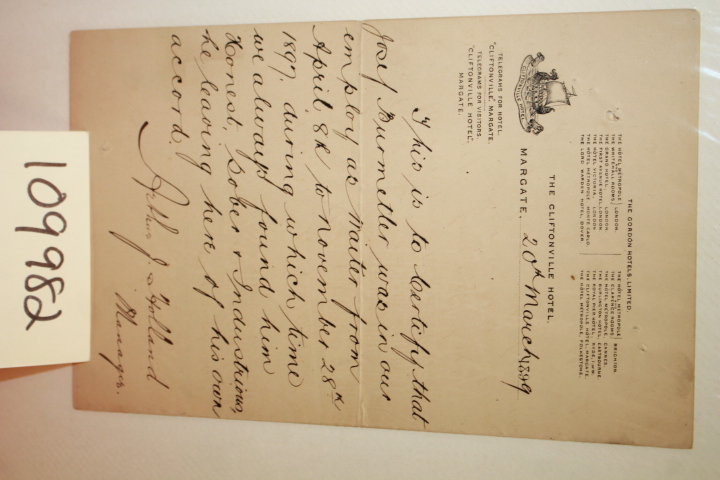 THE GORDON HOTELS LIMITED.
THE HÔTEL MÉTROPOLE } LONDON.
THE WHITEHALL ROOMS
THE GRAND HOTEL, LONDON.
THE FIRST AVENUE HOTEL, LONDON.
THE HÔTEL VICTORIA, LONDON.
THE HÔTEL MÉTROPOLE MONTE CARLO.
THE LORD WARDEN HOTEL DOVER.
THE HOTEL METROPOLE } BRIGHTON.
THE CLARENCE ROOMS
THE HOTEL METROPOLE, CANNES.
THE BURLINGTON HOTEL, EASTBOURNE
THE ROYAL PIER HOTEL, RYDE, I.W.
THE CLIFTONVILLE HOTEL, MARGATE.
THE HOTEL METROPOLE, FOLKESTONE.
THE CLIFTONVILLE HOTEL.
MARGATE, 20th March 1899
CLIFTONVILLE HOTEL
TELEGRAMS FOR HOTEL.
"CLIFTONVILLE, MARGATE.
TELEGRAMS FOR VISITORS.
"CLIFTONVILLE HOTEL",
MARGATE.
This is to Certify that
Josef Burmetler was in our
employ as Waiter from
April 8th to November 28th
1897 during which time
we always found him
Honest, Sober & Industrious,
he leaving here of his own
accord.
Arthur J. Holland
Manager.
109982